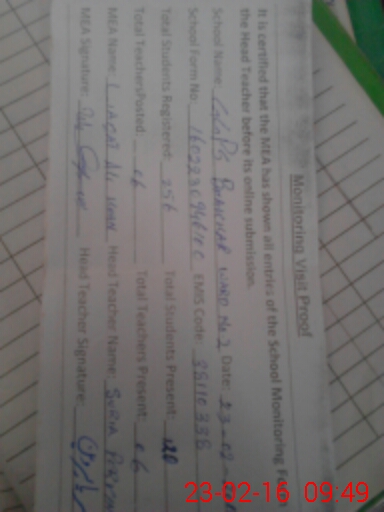 Monitoring Visit Proof
It is certified that the MEA has shown all entries of the School Monitoring F
the Head Teacher before its online submission.
School Name: GGPS WARD No 2 Date: 23-02-
School Form No. EMIS Code:
Total Students Registered: 256 Total Students Present: 120
Total TeachersPosted: 06 Total Teachers Present: 06
MEA Name: LIAQAT ALI KHAN Head Teacher Name: SURIA
MEA Signature: Head Teacher Signature:
23-02-16 09:49